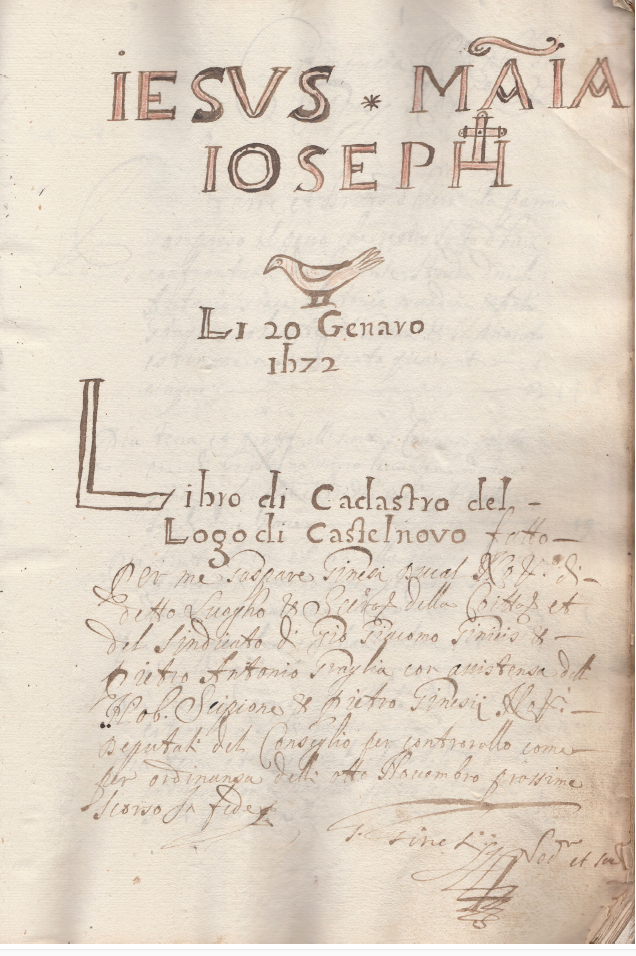 IESVS * MAIA
IOSEPH
Li 20 Genaro
1672
Libro di Cadastro del -
Logo di Castelnovo fatto -
Per me Gaspare Ginesi di -
detto Luogho & della et
del Sindicato di Gio Giacomo Ginesis & -
Pietro Antonio Graglia con assistensa delli
Nob. Scipione & Pietro Ginesij -
Deputati del Conseglio per controrollo come
per ordinansa delli otto Novembro prossime
scorso In fede
et